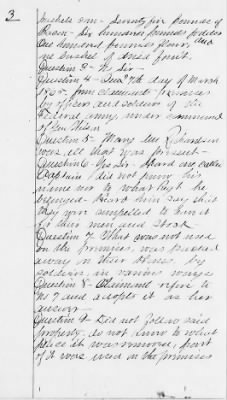 3
bushels corn - Seventy five pounds of
Bacon - Six hundred pounds fodder
One hundred pounds flour, and
one bushel of dried fruit.
Question 3 - No Sir
Question 4 - 7th day of March
1865. from claimants premises
by officers and soldiers of the
Federal army, under command
of Gen
Question 5 - Mary Richardson
were all that was present -
Question 6 - Yes Sir - Heard one called
Captain, I did not know his
name nor to what Regt he
belonged - Heard him say that
they was compelled to have it
for their men and Stock
Question 7 - What was not used
on the premises, was packed
away on their Horses by
soldiers, in various ways
Question 8 - Claimant refers to
No 7 and adopts it as her
answer -
Question 9 - Did not follow said
property, do not know to what
place it was removed, part
of it were used on the premises